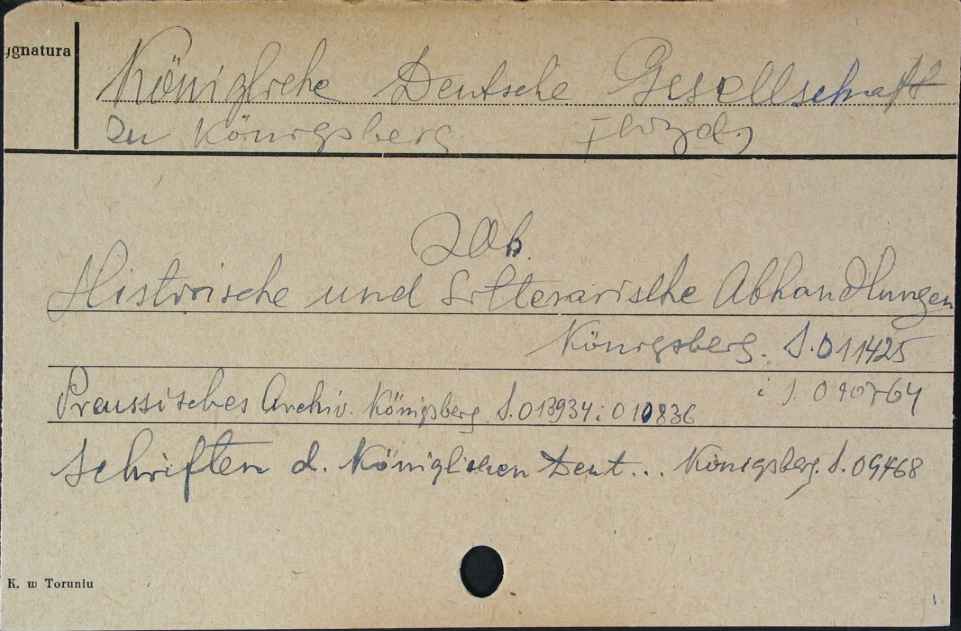 ygnatura
Königliche Deutsche Gesellschaft
zu Königsberg
zob.
Historische und Litterarische Abhandlungen
Königsberg. S. 011425
Preussisches Archiv. Königsberg. S. 013934 i 010836
Schriften d. Königlichen Deut... Königsberg. S. 09468
K. w Toruniu